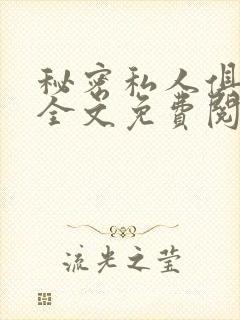 秘密私人俱
全文免費閱
流光之莹